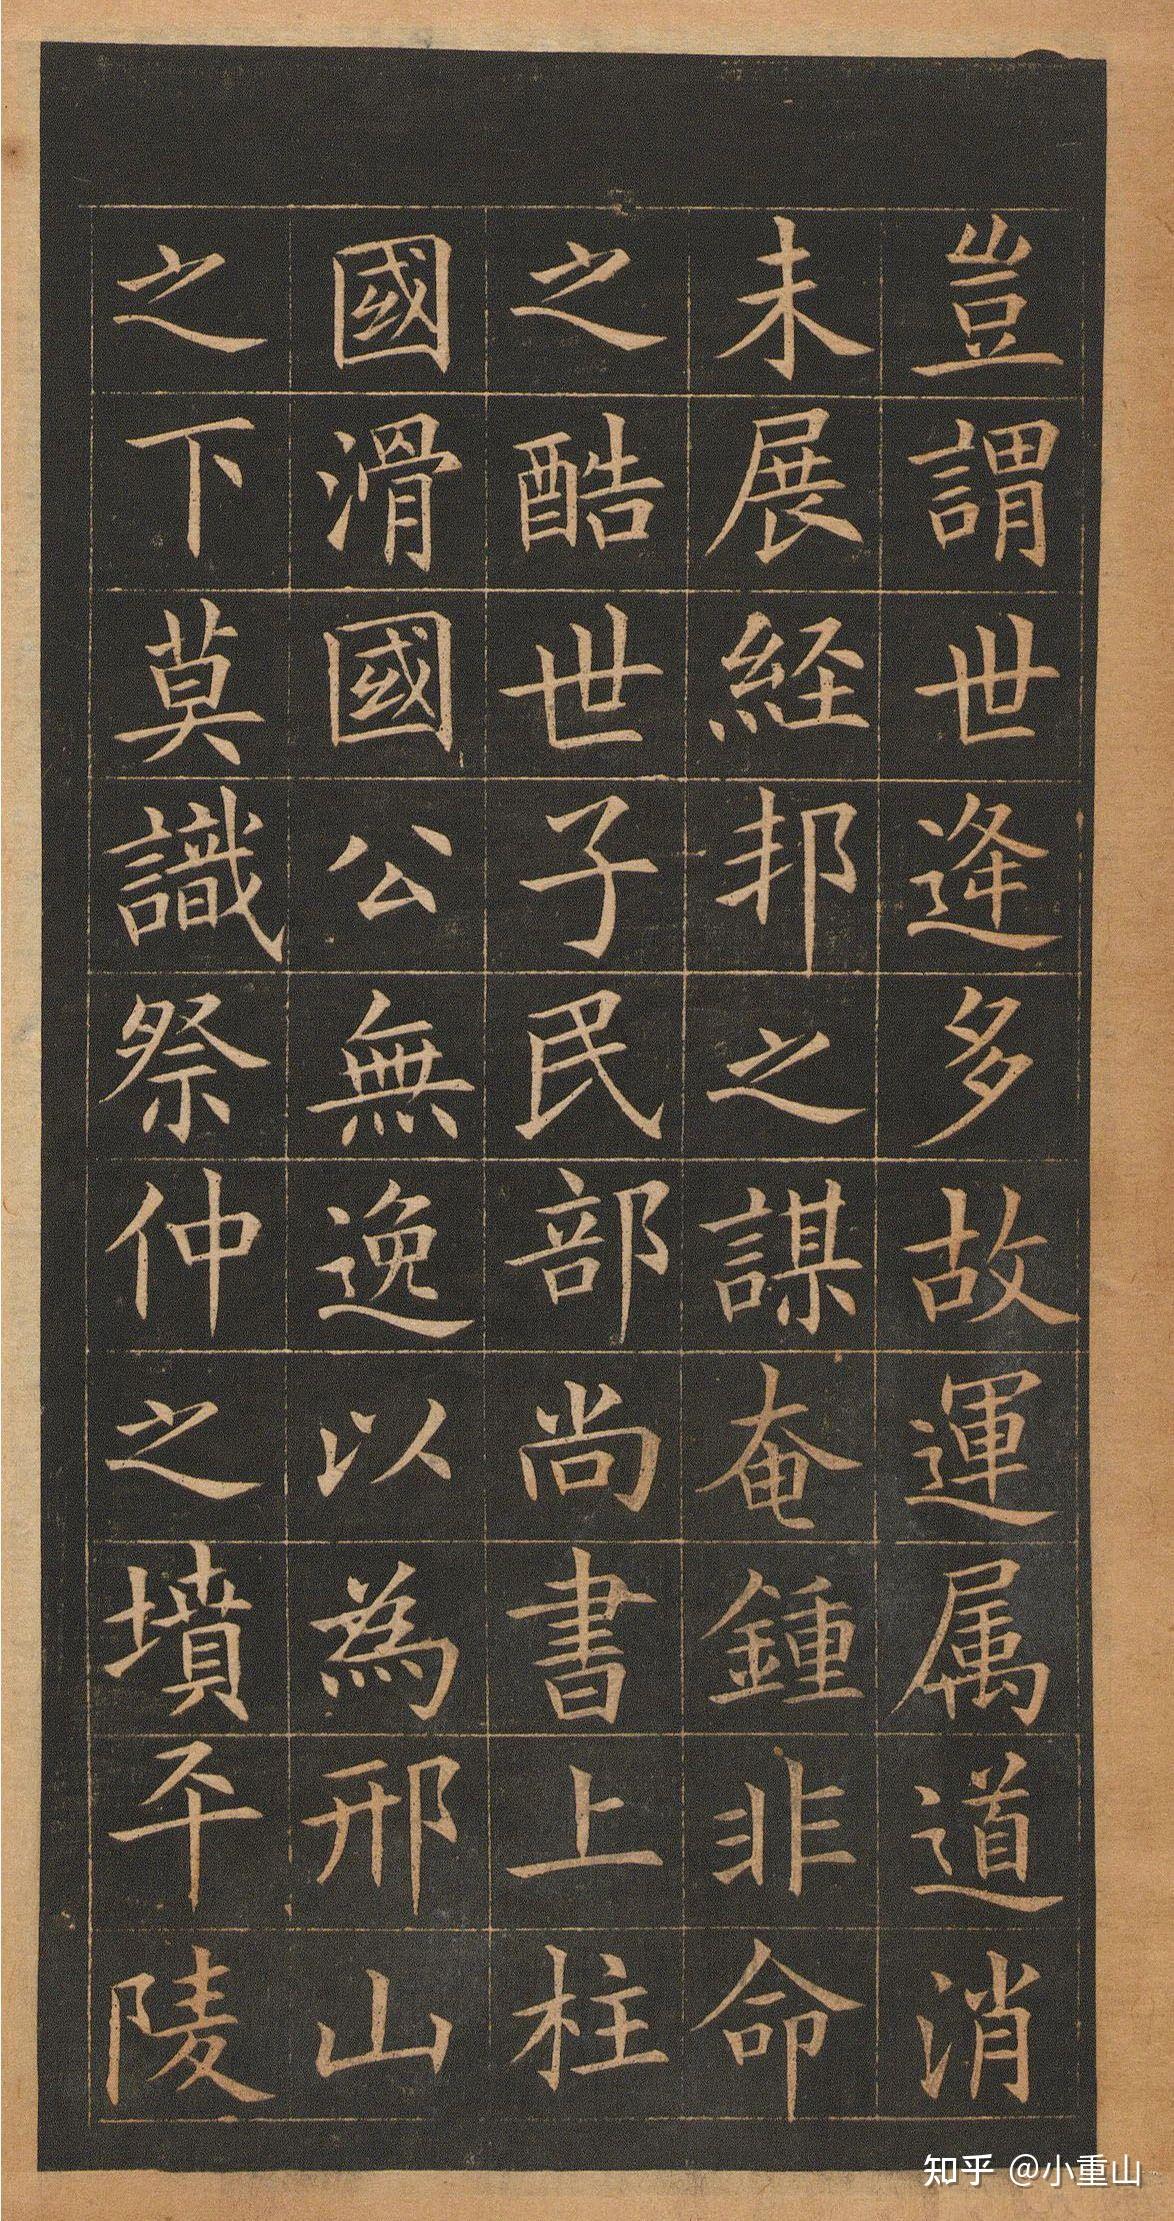 豈謂世逢多故運属道消
未展経邦之謀奄鍾非命
之酷世子民部尚書上柱
國滑國公無逸以為邢山
之下莫識祭仲之墳平陵
知乎 @小重山